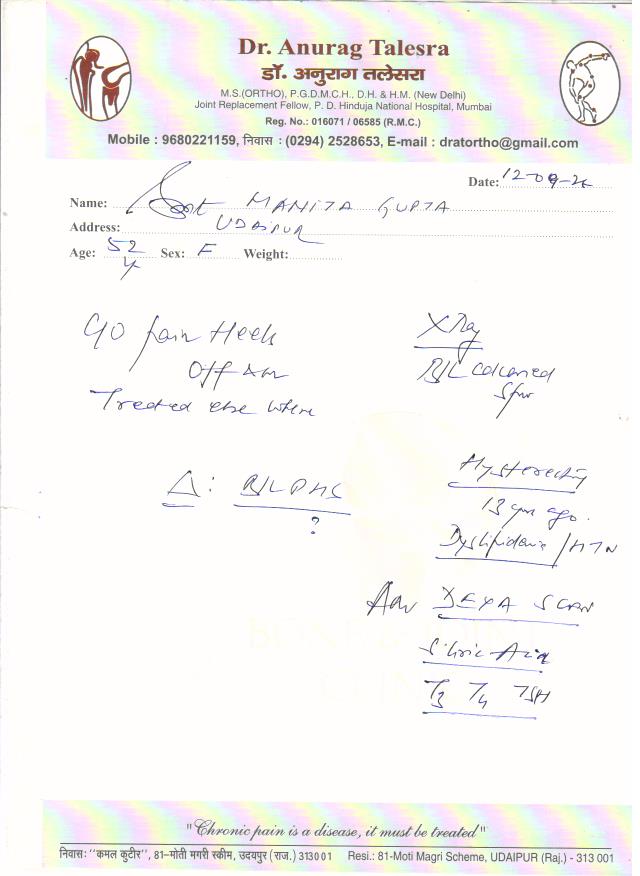 Dr. Anurag Talesra
डॉ. अनुराग तलेसरा
M.S.(ORTHO), P.G.D.M.C.H., D.H. & H.M. (New Delhi)
Joint Replacement Fellow, P. D. Hinduja National Hospital, Mumbai
Reg. No.: 016071 / 06585 (R.M.C.)
Mobile : 9680221159, निवास : (0294) 2528653, E-mail : dratortho@gmail.com
Date: 12-09-
Name: Smt MAMTA GUPTA
Address: UDAIPUR
Age: 52 y Sex: F Weight:
C/O pain Heels
Off & on
Treated else where
X Ray
B/L calcaneal
Spur
Δ: B/L PHS
?
Hysterectomy
13 yrs ago.
Dyslipidemia / HTN
Adv DEXA SCAN
S. Uric Acid
T3 T4 TSH
BONE & JOINT
CLINIC
"Chronic pain is a disease, it must be treated"
निवास: "कमल कुटीर", 81-मोती मगरी स्कीम, उदयपुर (राज.) 313001 Resi.: 81-Moti Magri Scheme, UDAIPUR (Raj.) - 313 001